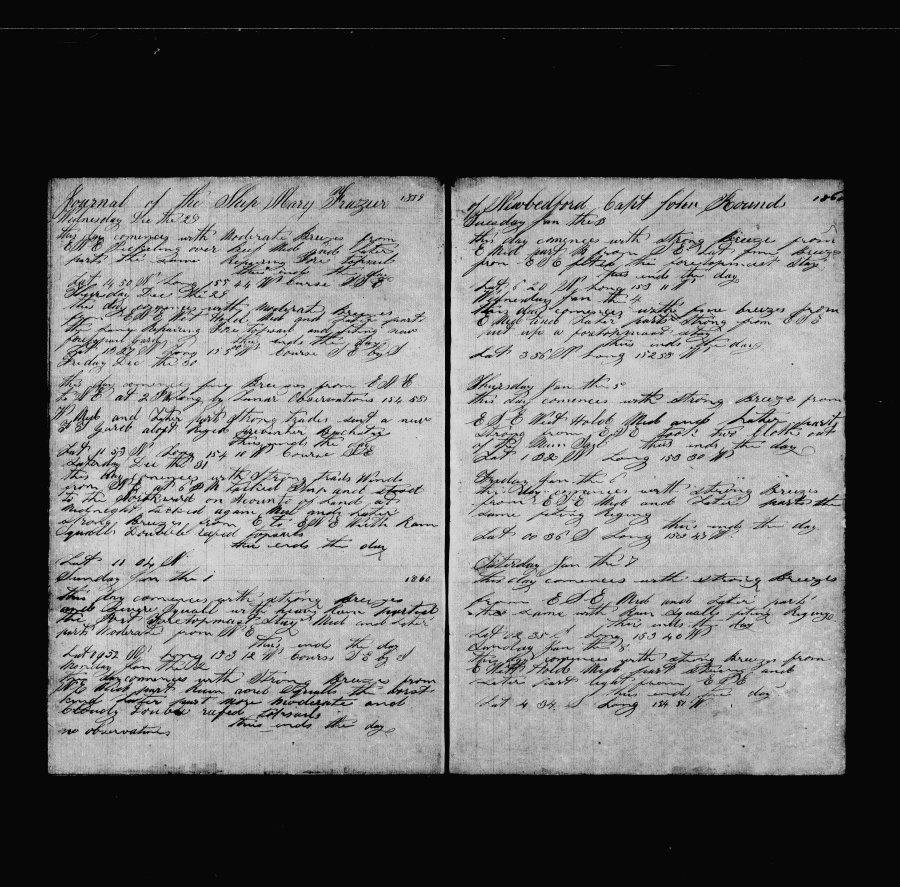 Journal of the Ship Mary Frazier 1859
Wednesday Dec the 28
this day comences with Moderate Breezes from
E N E Mid and later
parts the same Repairing fore topsail
this ends the day
Lat 14 50 N Long 155 24 W Course
Thursday Dec the 29
this day comences with Moderat Breezes
from Mid and later part
the same Repairing fore topsail and fiting new
this ends the day
Lat N Long 155 W Course S E by S
Friday Dec the 30
this day comences fine Breezes from E N E
to N E at 2 P M Long by Lunar Observations 154 55
W Mid and Later part Strong trades sent a new
aloft
this ends the day
Lat 11 53 N Long 154 11 W Course S E
Saturday Dec the 31
this day comences with Strong traids Wind
from at 6 P M tacked Ship and Stood
to the Northward on account of Land at
Midnight tacked again Mid and Later
strong Breezes from E to E N E With Rain
Squalls Double reefed topsails
this ends the day
Lat 11 04 N
Sunday Jan the 1 1860
this day comences with strong Breezes
and severe Squalls with heavy Rain
the Port Foretopmast Stay Mid and Later
part Moderate from N E
this ends the day
Lat N Long 153 12 W Course S E by S
Monday Jan the 2
this day comences with Strong Breezes from
Mid part Rain and Squalls the worst
kind Later part more moderate and
Cloudy Double reefed topsails
no observations this ends the day
of Newbedford Capt John Round 1860
Tuesday Jan the 3
this day comences with strong Breeze from
E Mid part from S E Last fine Breeze
from E S E the foretopmast Stay
this ends the day
Lat 6 20 N Long 153 11 W
Wednesday Jan the 4
this day comences with fine breezes from
E Mid and Later parts strong from E S E
put up a foretopmast stay
this ends the day
Lat 3 56 N Long 152 53 W
Thursday Jan the 5
this day comences with strong Breeze from
E S E West Hold Mid and Later parts
strong from E S E took two cloths out
of the Main Sail this ends the day
Lat 1 32 N Long 153 30 W
Friday Jan the 6
this day comences with strong Breezes
from E S E Mid and Later parts the
same fiting Riging
this ends the day
Lat 00 36 S Long 153 47 W
Saturday Jan the 7
this day comences with strong Breezes
from E S E Mid and Later part
the same with Rain Squalls fiting Riging
this ends the day
Lat 2 35 S Long 153 40 W
Sunday Jan the 8
this day comences with strong Breezes from
E West Hold Mid part strong and
Later part light from E S E
this ends the day
Lat 4 34 S Long 154 51 W